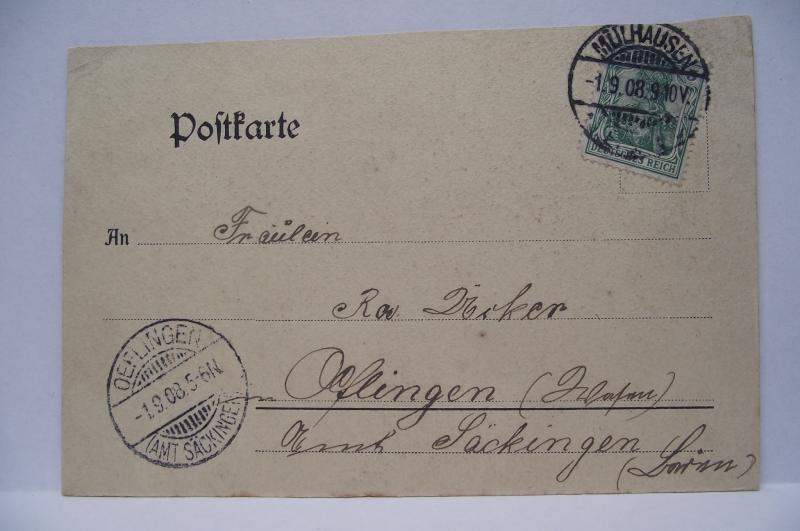 MÜLHAUSEN
-1.9.08.9-10V.
DEUTSCHES REICH
Postkarte
An Fräulein
OEFLINGEN
-1.9.08.5-6N.
(AMT SÄCKINGEN)
Öflingen
Amt Säckingen
(Baden)